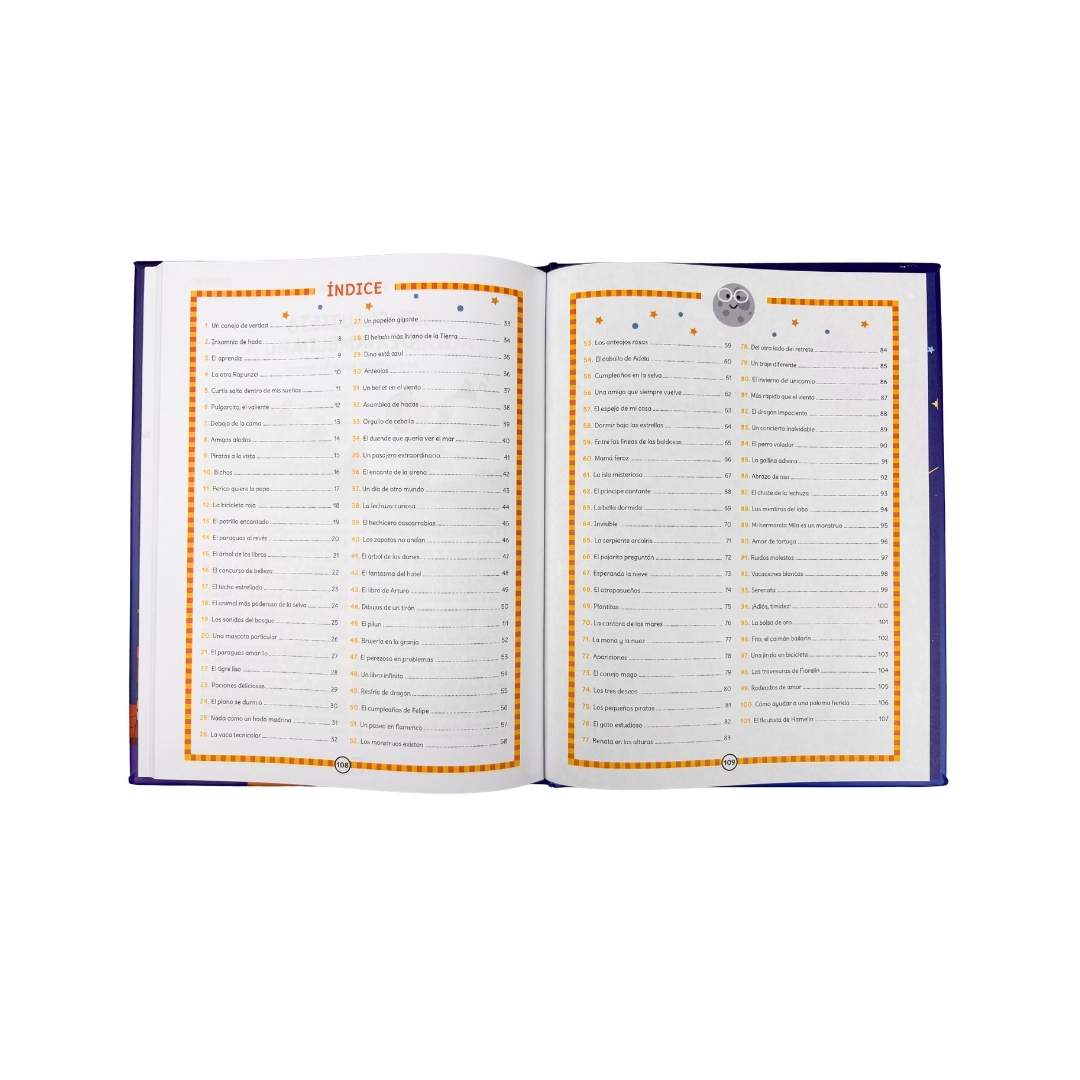 ÍNDICE
1. Un conejo de verdad 7
2. Insomnio de hada 8
3. El aprendiz 9
4. La otra Rapunzel 10
5. Curtis salta dentro de mis sueños 11
6. Pulgarcita, el valiente 12
7. Debajo de la cama 13
8. Amigos alados 14
9. Piratas a la vista 15
10. Bichos 16
11. Perico quiere la papa 17
12. La bicicleta roja 18
13. El potrillo encantado 19
14. El paraguas al revés 20
15. El árbol de los libros 21
16. El concurso de belleza 22
17. El techo estrellado 23
18. El animal más poderoso de la selva 24
19. Los sonidos del bosque 25
20. Una mascota particular 26
21. El paraguas amarillo 27
22. El tigre liso 28
23. Pociones deliciosas 29
24. El piano se durmió 30
25. Nada como un hada madrina 31
26. La vaca tecnicolor 32
27. Un papelón gigante 33
28. El helado más liviano de la Tierra 34
29. Dino está azul 35
30. Anteojos 36
31. Un ballet en el viento 37
32. Asamblea de hadas 38
33. Orgullo de cebolla 39
34. El duende que quería ver el mar 40
35. Un pasajero extraordinario 41
36. El encanto de la sirena 42
37. Un día de otro mundo 43
38. La lechuza curiosa 44
39. El hechicero cascarrabias 45
40. Los zapatos no andan 46
41. El árbol de los dones 47
42. El fantasma del hotel 48
43. El libro de Arturo 49
44. Dibujos de un tirón 50
45. El pilun 51
46. Brujería en la granja 52
47. El perezoso en problemas 53
48. Un libro infinito 54
49. Resfrío de dragón 55
50. El cumpleaños de Felipe 56
51. Un paseo en flamenco 57
52. Los monstruos existen 58
108
53. Los anteojos rosas 59
54. El caballo de Adela 60
55. Cumpleaños en la selva 61
56. Una amiga que siempre vuelve 62
57. El espejo de mi casa 63
58. Dormir bajo las estrellas 64
59. Entre las líneas de las baldosas 65
60. Mamá feroz 66
61. La isla misteriosa 67
62. El príncipe cantante 68
63. La bella dormida 69
64. Invisible 70
65. La serpiente arcoíris 71
66. El pajarito preguntón 72
67. Esperando la nieve 73
68. El atrapasueños 74
69. Plantitas 75
70. La cantora de los mares 76
71. La mona y la nuez 77
72. Apariciones 78
73. El conejo mago 79
74. Los tres deseos 80
75. Los pequeños piratas 81
76. El gato estudioso 82
77. Renata en las alturas 83
78. Del otro lado del retrete 84
79. Un traje diferente 85
80. El invierno del unicornio 86
81. Más rápido que el viento 87
82. El dragón impaciente 88
83. Un concierto inolvidable 89
84. El perro volador 90
85. La gallina adivina 91
86. Abrazo de oso 92
87. El chiste de la lechuza 93
88. Las sombras del lobo 94
89. Mi hermanita Mila es un monstruo 95
90. Amor de tortuga 96
91. Ruidos molestos 97
92. Vacaciones blancas 98
93. Serenata 99
94. ¡Adiós, timidez! 100
95. La bolsa de oro 101
96. Fito, el caimán bailarín 102
97. Una jirafa en bicicleta 103
98. Las travesuras de Fiorelín 104
99. Rodeados de amor 105
100. Cómo ayudar a una paloma herida 106
101. El flautista de Hamelin 107
109